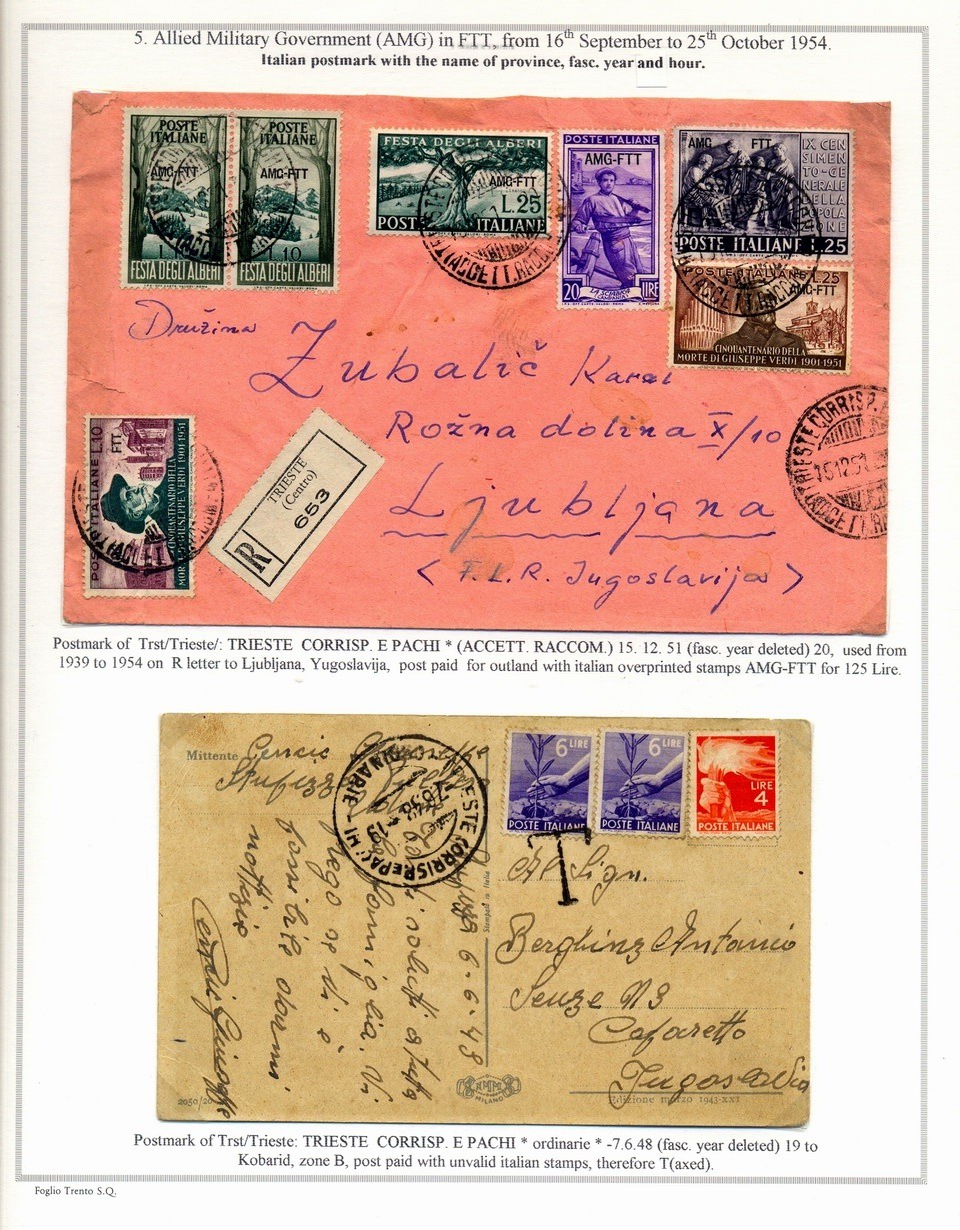 5. Allied Military Government (AMG) in FTT, from 16th September to 25th October 1954.
Italian postmark with the name of province, fasc. year and hour.
POSTE ITALIANE
AMG-FTT
L.10
FESTA DEGLI ALBERI
POSTE ITALIANE
AMG-FTT
L.10
FESTA DEGLI ALBERI
FESTA DEGLI ALBERI
AMG-FTT
L.25
POSTE ITALIANE
POSTE ITALIANE
AMG-FTT
20 LIRE
AMG FTT
IX CEN
SIMEN
TO-GE
NERALE
DELLA
POPOLA
ZIONE
POSTE ITALIANE L.25
POSTE ITALIANE L.25
AMG-FTT
CINQUANTENARIO DELLA
MORTE DI GIUSEPPE VERDI 1901-1951
Družina
Zubalič Karel
Rožna dolina X/10
Ljubljana
< F.L.R. Jugoslavija >
TRIESTE CORRISP. E
15.12.51
(ACCETT. RA
POSTE ITALIANE L.10
FTT
CINQUANTENARIO DELLA
MORTE DI GIUSEPPE VERDI 1901-1951
R
TRIESTE
(Centro)
653
Postmark of Trst/Trieste/: TRIESTE CORRISP. E PACHI * (ACCETT. RACCOM.) 15. 12. 51 (fasc. year deleted) 20, used from
1939 to 1954 on R letter to Ljubljana, Yugoslavija, post paid for outland with italian overprinted stamps AMG-FTT for 125 Lire.
Mittente
TRIESTE CORRISP. E PACHI
6 LIRE
POSTE ITALIANE
6 LIRE
POSTE ITALIANE
LIRE
4
POSTE ITALIANE
T
Al Sign.
Berghinz Antonio
Senze N3
Caparetto
Jugoslavia
6-6-48
famiglia. Vi
prego se vi è
possibile darmi
notizie
Stampato in Italia
MILANO
Edizione marzo 1943-XXI
Postmark of Trst/Trieste: TRIESTE CORRISP. E PACHI * ordinarie * -7.6.48 (fasc. year deleted) 19 to
Kobarid, zone B, post paid with unvalid italian stamps, therefore T(axed).
Foglio Trento S.Q.